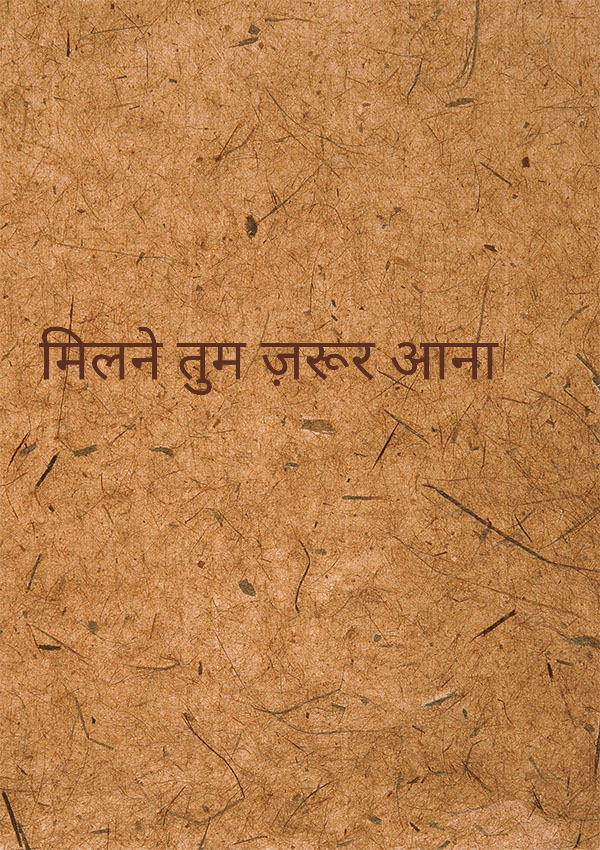 मिलने तुम ज़रूर आना